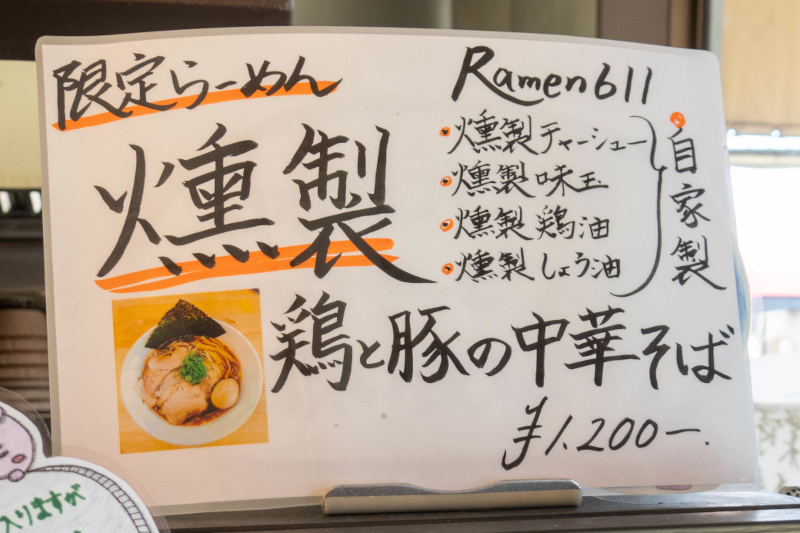 限定らーめん
Ramen611
燻製
・燻製チャーシュー
・燻製味玉
・燻製鶏油
・燻製しょう油
自家製
鶏と豚の中華そば
¥1.200ー.
入りますが